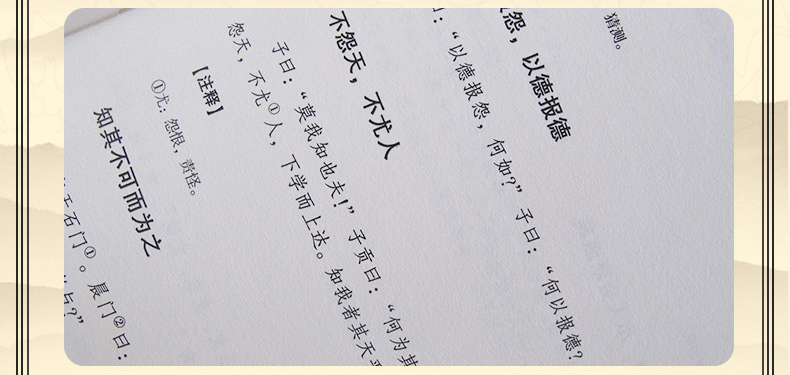 猜测。
怨，以德报德
：“以德报怨，何如？”子曰：“何以报德？
不怨天，不尤人
子曰：“莫我知也夫！”子贡曰：“何为其
怨天，不尤①人，下学而上达。知我者其天
【注释】
①尤：怨恨，责怪。
知其不可而为之
石门①。晨门②曰：
与？”